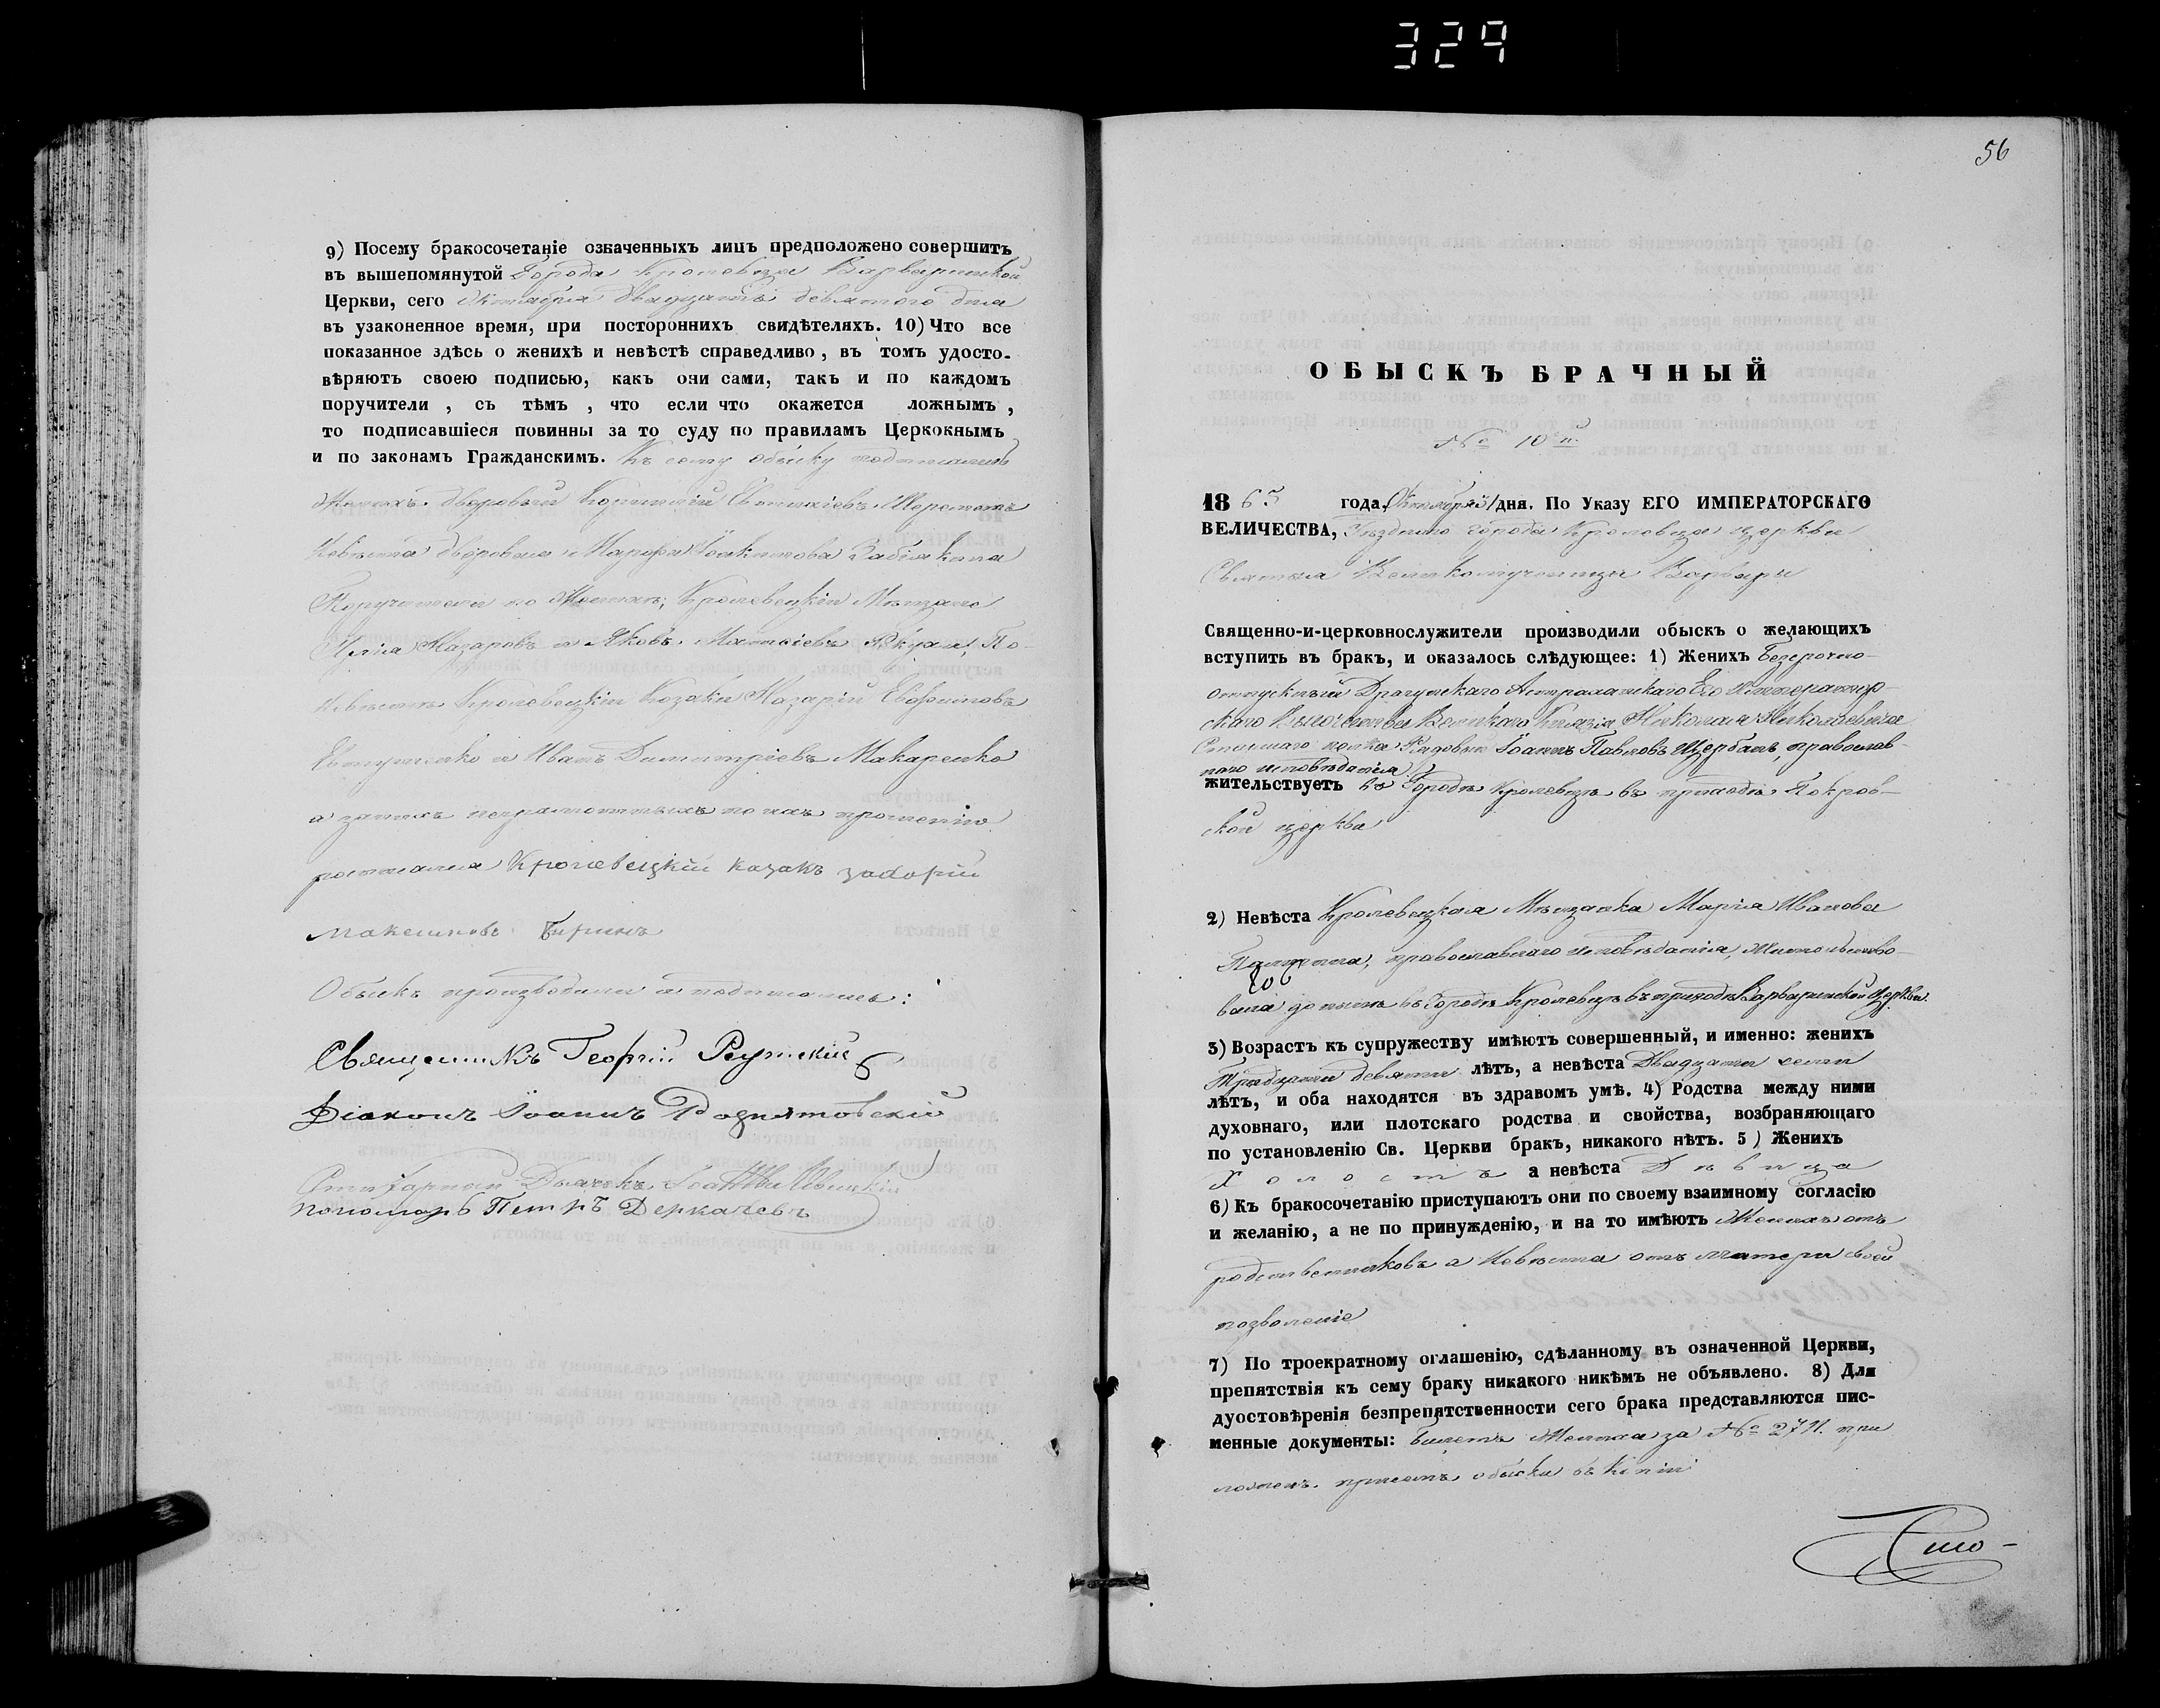 329
9) Посему бракосочетаніе означенныхъ лицъ предположено совершить
въ вышепомянутой Города Кролевца Варваринской
Церкви, сего Октября двадцать девятого дня
въ узаконенное время, при постороннихъ свидѣтеляхъ. 10) Что все
показанное здѣсь о женихѣ и невѣстѣ справедливо, въ томъ удосто-
вѣряютъ своею подписью, какъ они сами, такъ и по каждомъ
поручители, съ тѣмъ, что если что окажется ложнымъ,
то подписавшіеся повинны за то суду по правиламъ Церкокнымъ
и по законамъ Гражданскимъ. Къ сему обыску
Женихъ дворовый Шереметъ
Невѣста дворовая Марфа Іоакимова
Поручители по Женихѣ, Кролевецкіи Мѣщане
Назаровъ и Яковъ По
невѣстѣ Кролевецкіи Козаки Назарій Евфимовъ
Евтушенко и Иванъ Димитріевъ Макаренко
а за нихъ неграмотныхъ по ихъ прошенію
росписался Кролевецкій казакъ
Обыскъ производили и подписались:
Священникъ Георгій
Діаконъ Іоаннъ
Стихарный Дьячекъ
пономарь Петръ Деркачевъ
56
ОБЫСКЪ БРАЧНЫЙ
№ 10й
1863 года, Октября дня. По Указу ЕГО ИМПЕРАТОРСКАГО
ВЕЛИЧЕСТВА, города Кролевца церкви
Святыя Великомученицы Варвары
Священно-и-церковнослужители производили обыскъ о желающихъ
вступить въ бракъ, и оказалось слѣдующее: 1) Женихъ безсрочно-
отпускный Драгунскаго Астраханскаго Его Император-
скаго Высочества Великаго Князя Николая Николаевича
Старшаго полка Рядовый Іоаннъ Павловъ Щербакъ, православ-
наго исповѣданія
жительствуетъ въ Городѣ Кролевцѣ въ приходѣ Покров-
ской церкви
2) Невѣста Кролевецкая Мѣщанка Марія Иванова
православнаго исповѣданія, жительство-
вала до нынѣ въ Городѣ Кролевцѣ въ приходѣ Варваринской Церкви.
3) Возрастъ къ супружеству имѣютъ совершенный, и именно: женихъ
Тридцати девяти лѣтъ, а невѣста Двадцати семи
лѣтъ, и оба находятся въ здравомъ умѣ. 4) Родства между ними
духовнаго, или плотскаго родства и свойства, возбраняющаго
по установленію Св. Церкви бракъ, никакого нѣтъ. 5) Женихъ
Холостъ а невѣста Дѣвица
6) Къ бракосочетанію приступаютъ они по своему взаимному согласію
и желанію, а не по принужденію, и на то имѣютъ Женихъ отъ
родственниковъ а Невѣста отъ матери своей
позволеніе
7) По троекратному оглашенію, сдѣланному въ означенной Церкви,
препятствія къ сему браку никакого никѣмъ не объявлено. 8) Для
дуостовѣренія безпрепятственности сего брака представляются пис-
менные документы: Билетъ Жениха за № при
обыскѣ въ копіи